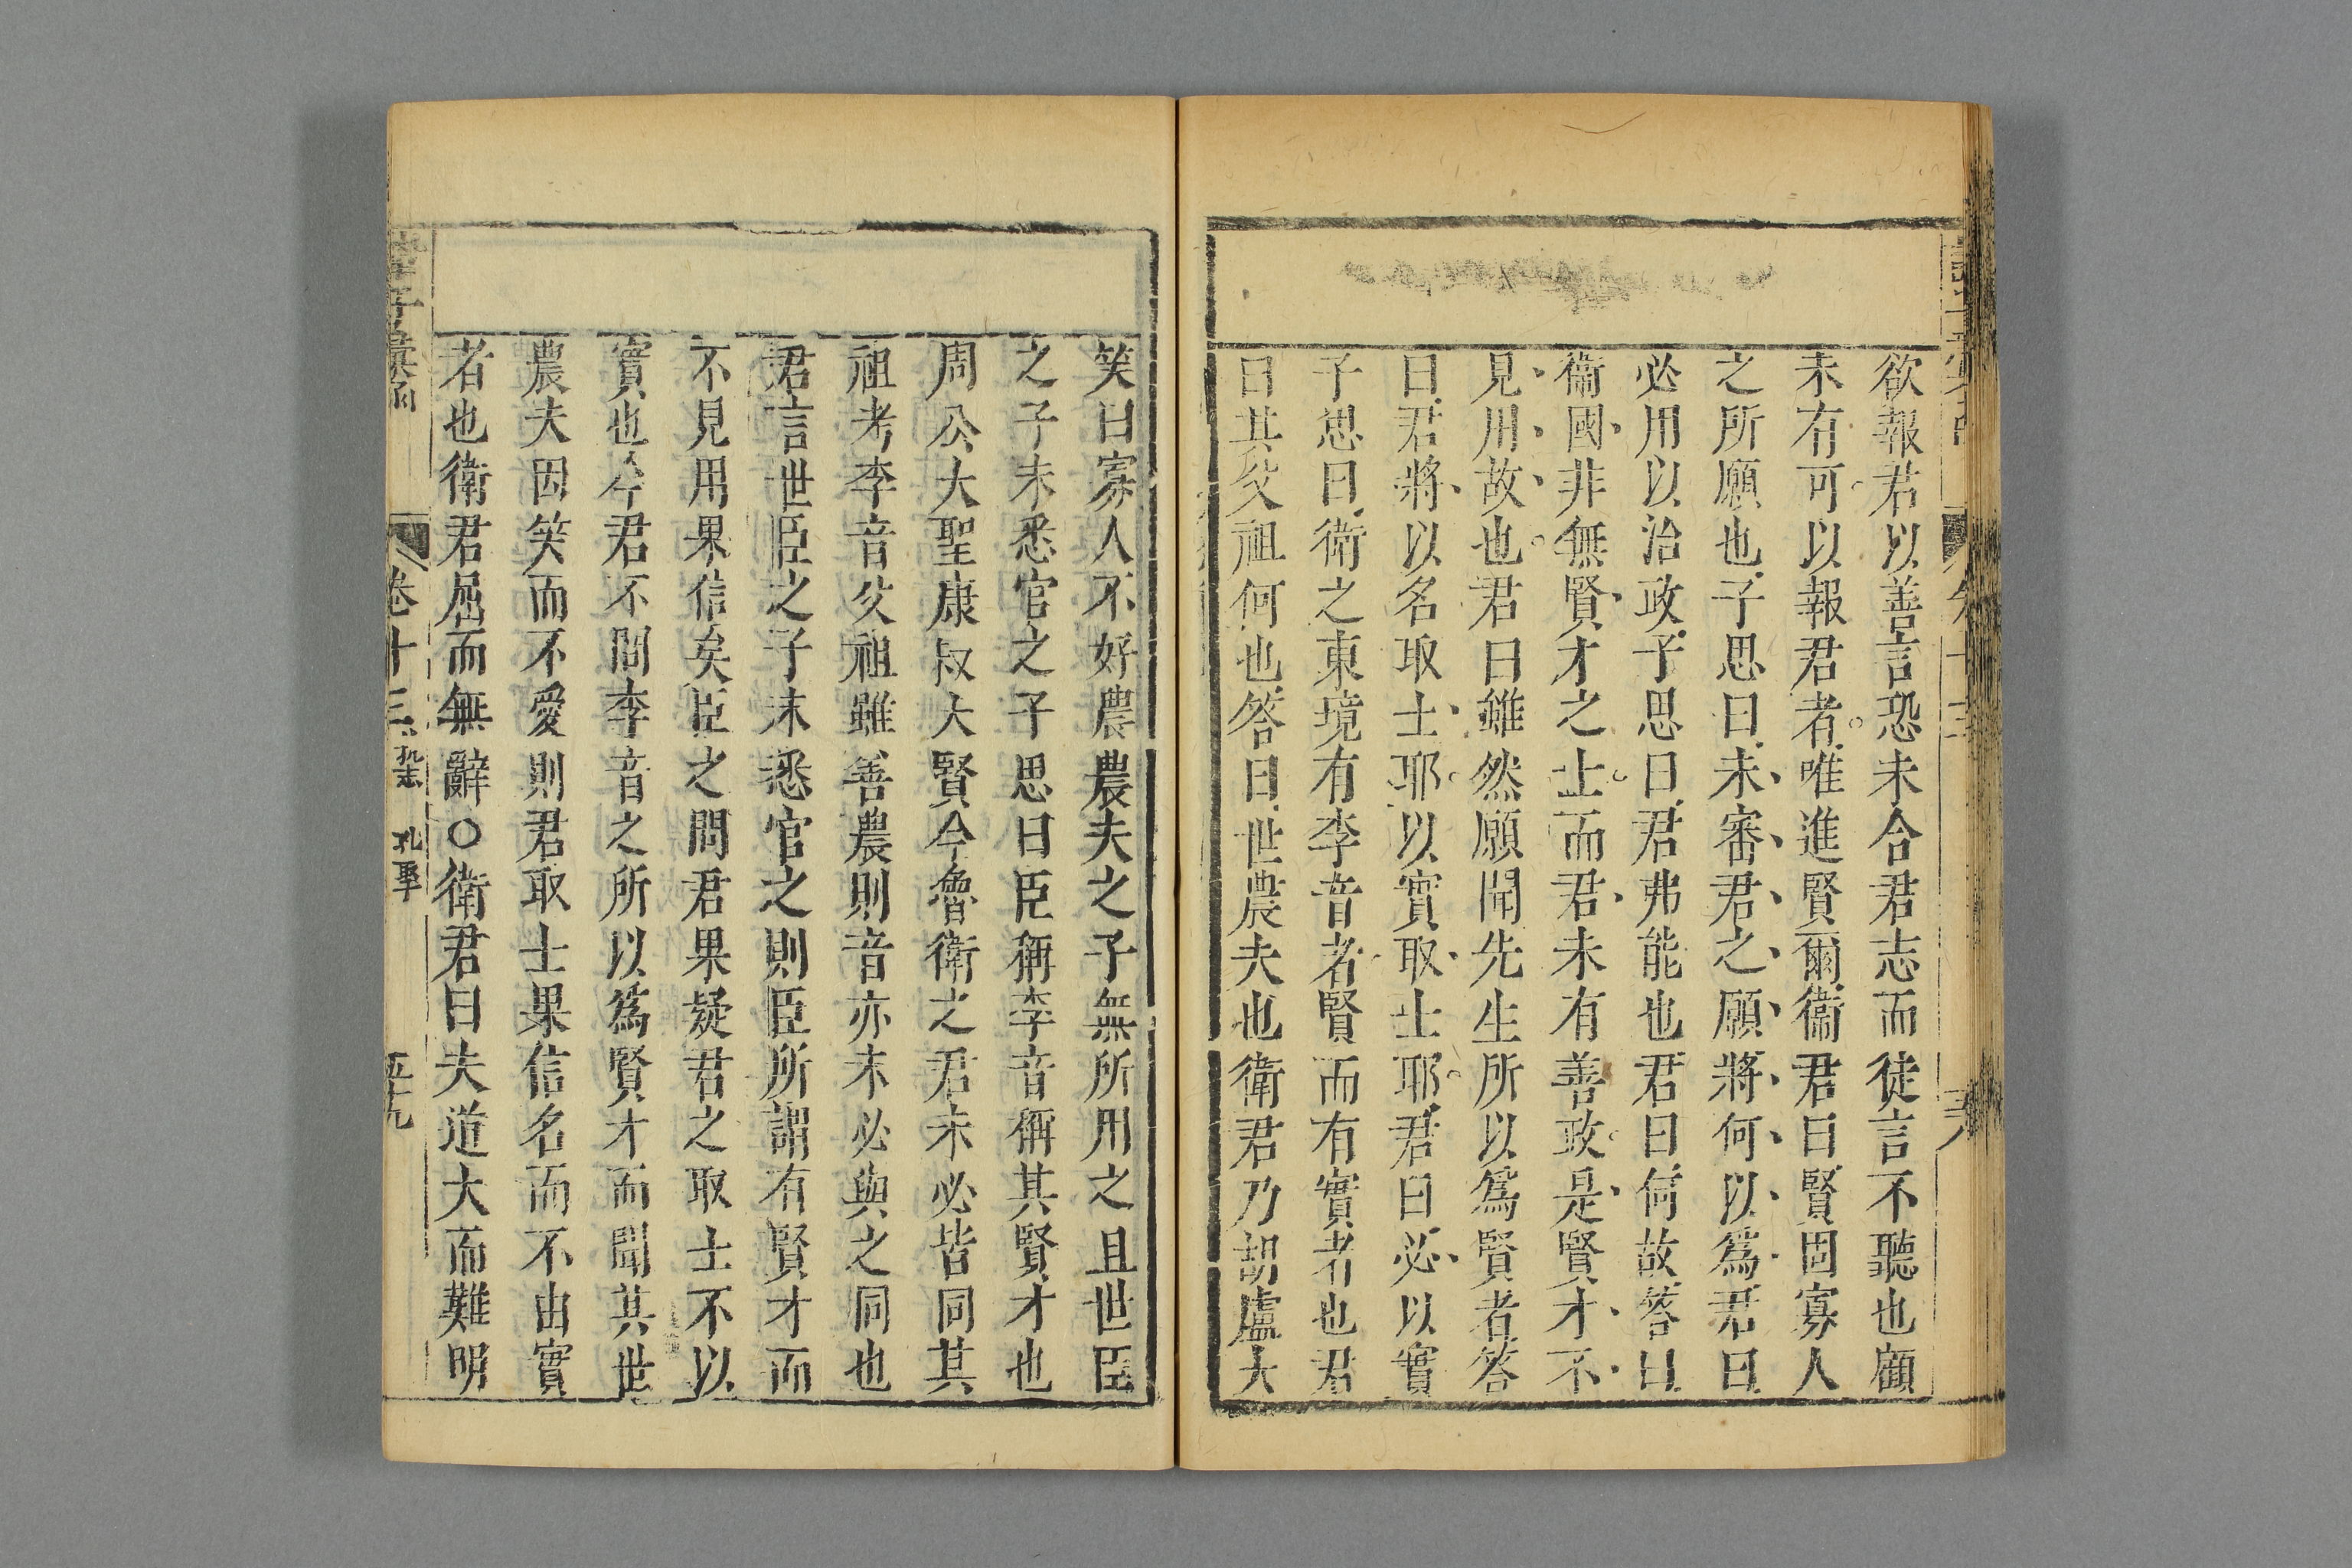 欲報君以善言恐未合君志而徒言不聽也顧
未有可以報君者唯進賢爾衞君曰賢固寡人
之所願也子思曰未審君之願將何以爲君曰
必用以治政子思曰君弗能也君曰何故答曰
衞國非無賢才之士而君未有善政是賢才不
見用故也君曰雖然願聞先生所以爲賢者答
曰君將以名取士耶以實取士耶君曰必以實
子思曰衛之東境有李音者賢而有實者也君
曰其父祖何也答曰世農夫也衛君乃胡盧大
笑曰寡人不好農農夫之子無所用之且世臣
之子未悉官之子思曰臣稱李音稱其賢才也
周公大聖康叔大賢今魯衛之君未必皆同其
祖考李音父祖雖善農則音亦未必與之同也
君言世臣之子未悉官之則臣所謂有賢才而
不見用果信矣臣之問君果疑君之取士不以
實也今君不問李音之所以爲賢才而聞其世
農夫因笑而不愛則君取士果信名而不由實
者也衛君屈而無辭○衛君曰夫道大而難明
卷十三 孔叢 五十九